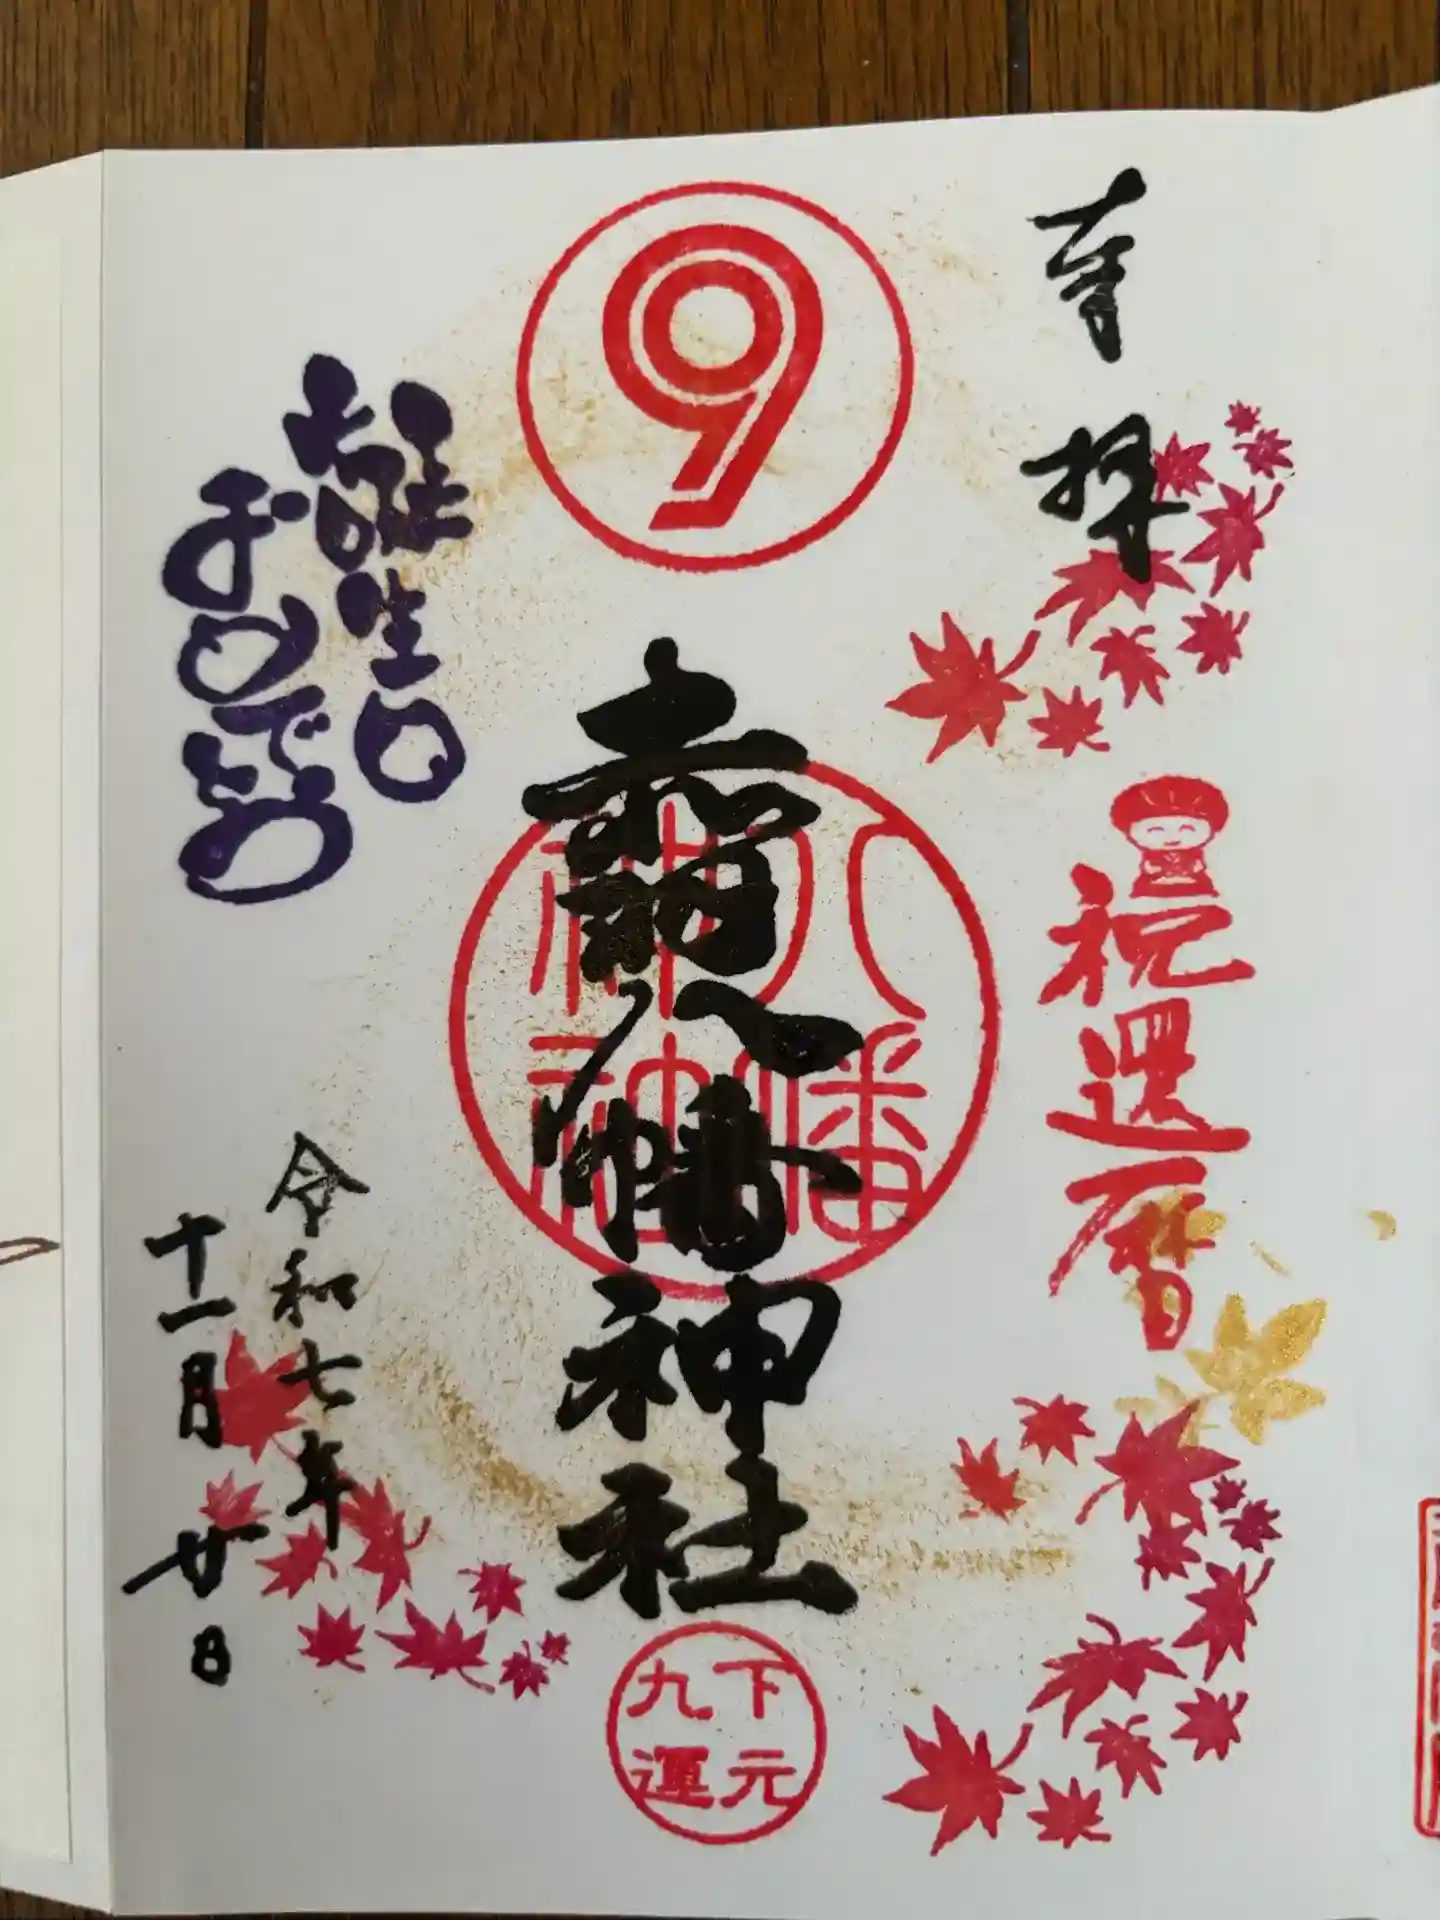 奉拝
祝還暦
9
八幡神社
八幡
神社
下元
九運
誕生日
おめでとう
令和七年
十一月廿日